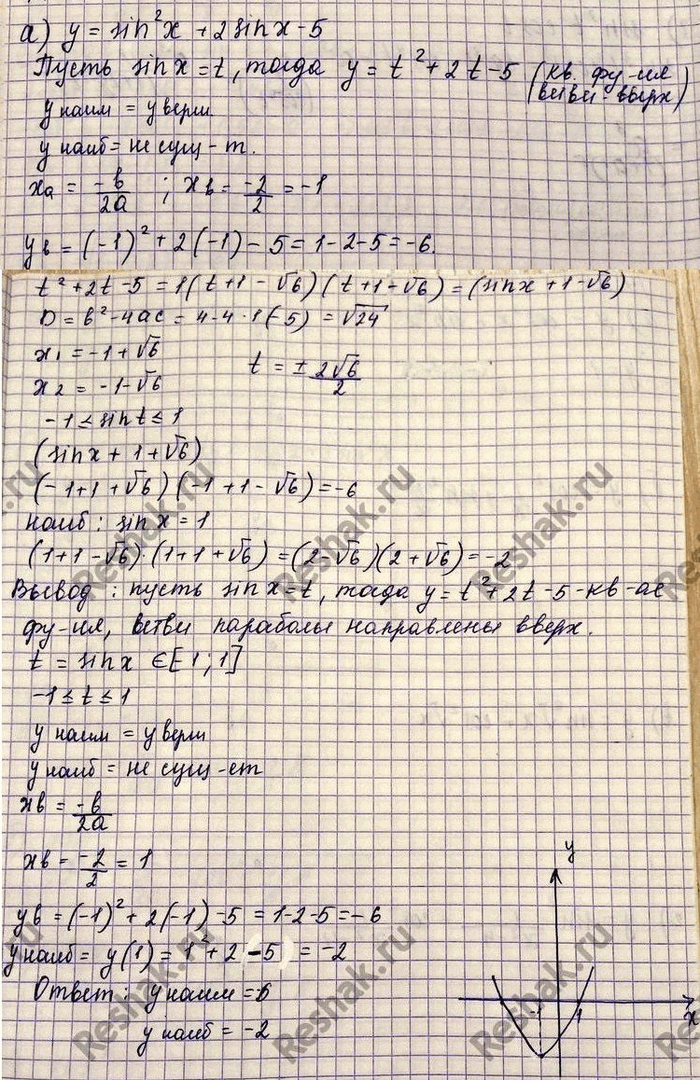 а) y = sin²x + 2sinx - 5
Пусть sinx = t, тогда y = t² + 2t - 5 (кв. фу-ия
ветви - вверх)
y наим = y верш.
y наиб = не сущ-т.
xв = -b/2a ; xв = -2/2 = -1
yв = (-1)² + 2(-1) - 5 = 1-2-5 = -6.
t² + 2t - 5 = 1(t+1-√6)(t+1-√6) = (sinx + 1-√6)
D = b² - 4ac = 4-4·1(-5) = √24
x₁ = -1+√6
t = ± 2√6/2
x₂ = -1-√6
-1 ≤ sint ≤ 1
(sinx + 1+√6)
(-1+1+√6)(-1+1-√6) = -6
наиб: sinx = 1
(1+1-√6)·(1+1+√6) = (2-√6)(2+√6) = -2
Вывод: пусть sinx=t, тогда y = t²+2t-5-кв-ае
фу-ия, ветви параболы направлены вверх.
t = sinx ∈[1;1]
-1 ≤ t ≤ 1
y наим = y верш
y наиб = не сущ-ет
xв = -b/2a
xв = -2/2 = 1
yв = (-1)² + 2(-1) - 5 = 1-2-5 = -6
y наиб = y(1) = 1² + 2 - 5 = -2
Ответ: y наим = -6
y наиб = -2
y
-1
1
x
Reshak.ru
Reshak.ru
Reshak.ru
Reshak.ru
Reshak.ru
Reshak.ru